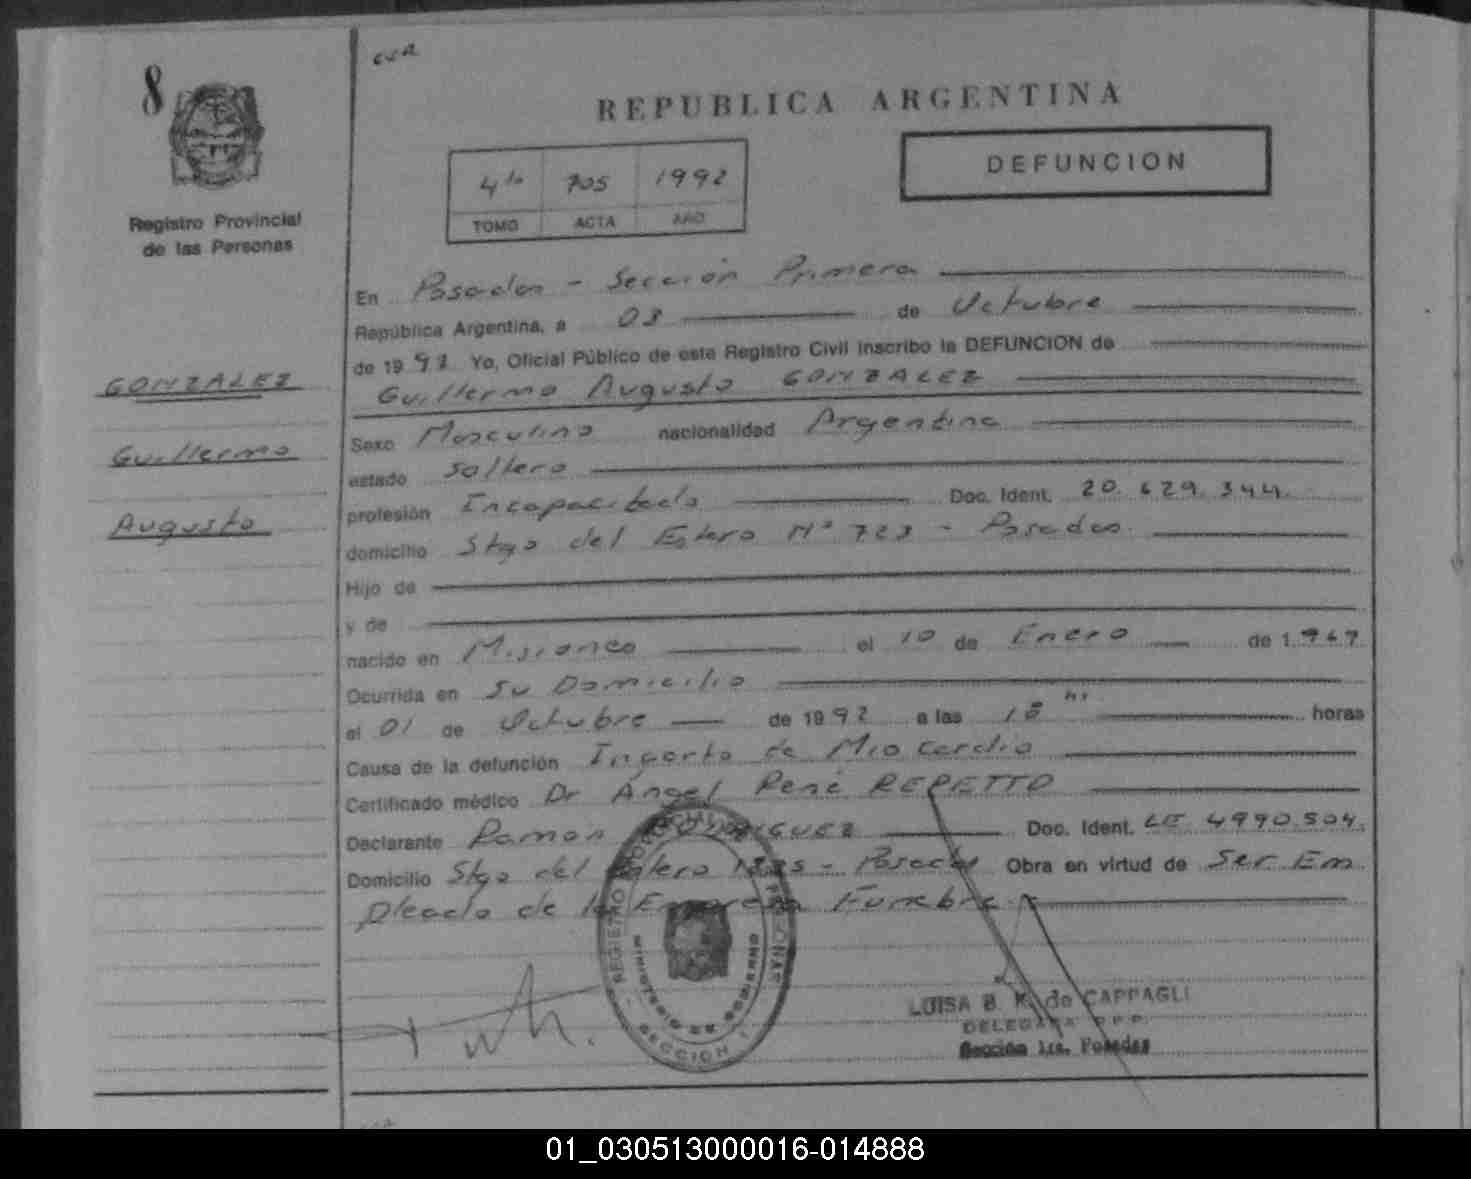 8
REPUBLICA ARGENTINA
DEFUNCION
4to 705 1992
TOMO ACTA AÑO
Registro Provincial
de las Personas
GONZALEZ
Guillermo
Augusto
En Posadas - Sección Primera
República Argentina, a 03 de Octubre
de 1992 Yo, Oficial Público de este Registro Civil inscribo la DEFUNCION de
Guillermo Augusto GONZALEZ
Sexo Masculino nacionalidad Argentina
estado Soltero
profesión Incapacitado Doc. Ident. 20.629.344.
domicilio Stgo del Estero Nº 723 - Posadas.
Hijo de
y de
nacido en Misiones el 10 de Enero de 1.967
Ocurrida en su Domicilio
el 01 de Octubre de 1992 a las 18 hs. horas
Causa de la defunción Infarto de Miocardio
Certificado médico Dr Ángel René REPETTO
Declarante Ramon Doc. Ident. LE 4990.504.
Domicilio Stgo del Estero - Posadas Obra en virtud de Ser Em
pleado de la Empresa Funebre
REGISTRO PROVINCIAL PERSONAS
MINISTERIO DE GOBIERNO
SECCION 1
LUISA B. K. de CAPPAGLI
DELEGADA R.P.P.
Sección 1ra. Posadas
01_030513000016-014888